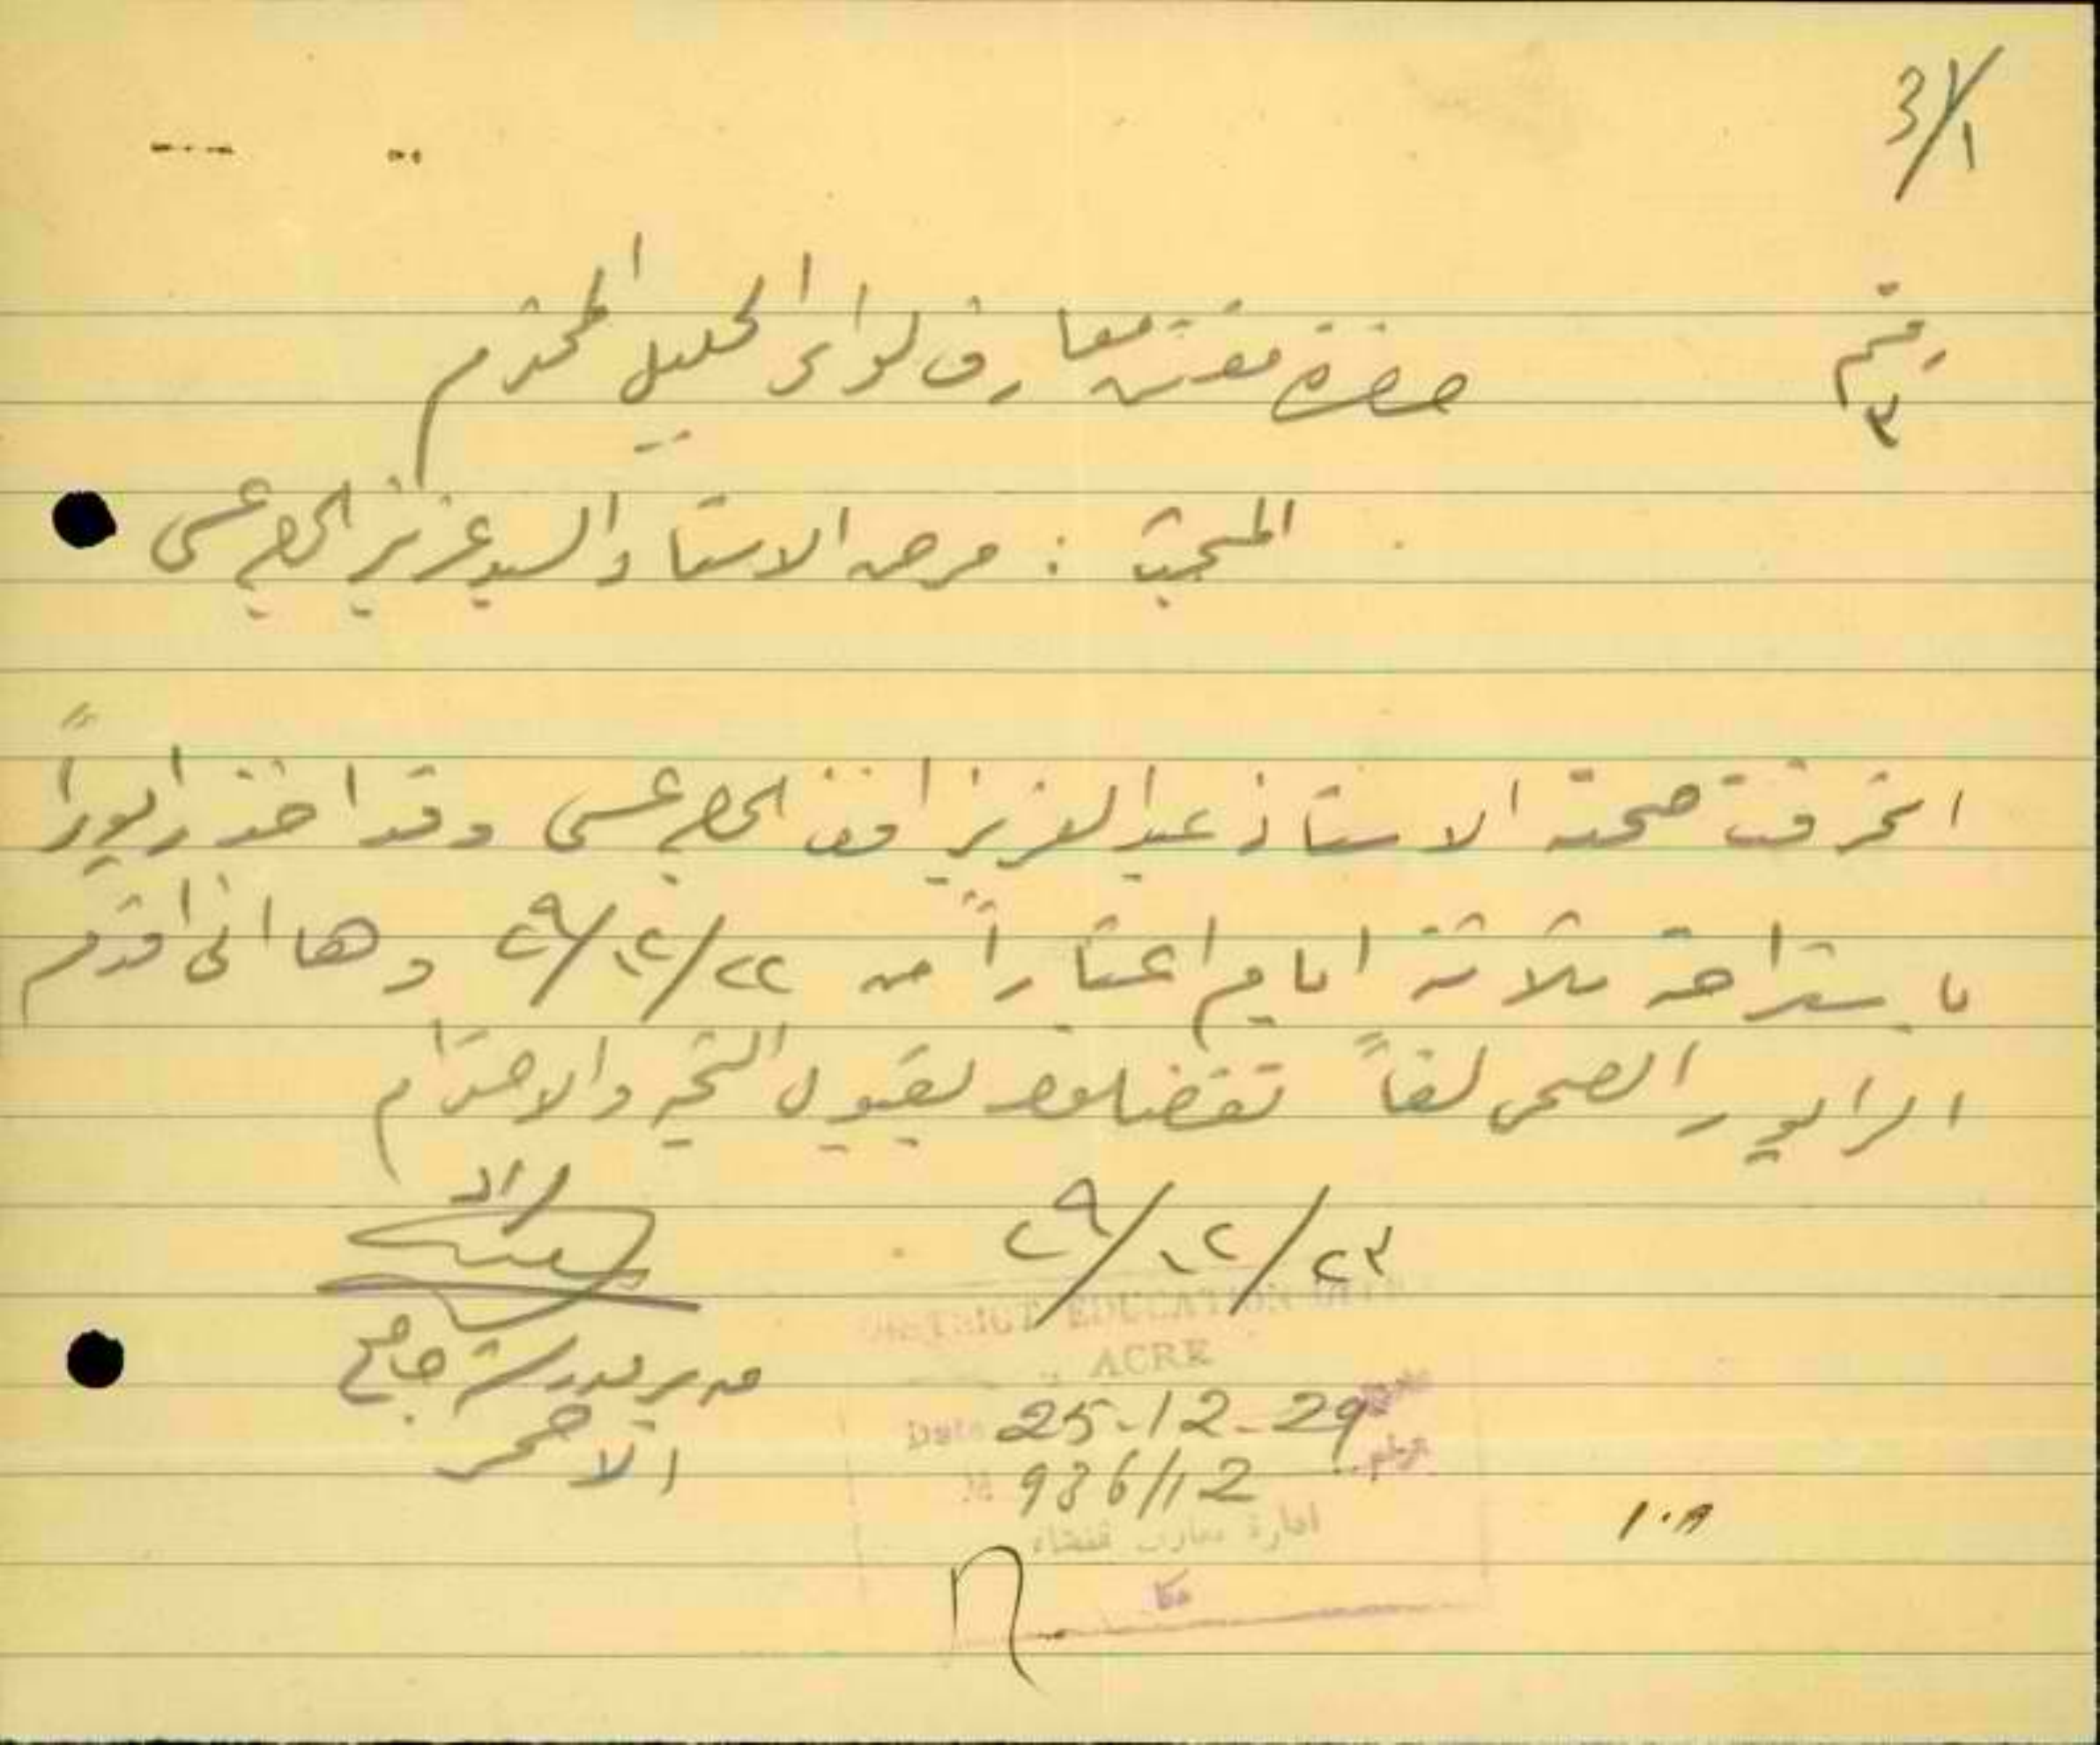 3/1
رقم
٣
حضرة مفتش معارف لواء الجليل المحترم
المبحث : مرض الاستاذ السيد عزيز
انحرفت صحة الاستاذ عبد العزيز افندي وقد اخذ رابوراً
باستراحة ثلاثة ايام اعتباراً من ٢٢/١٢/٢٩ وها اني اقدم
الرابور الصحي لفاً تفضلوا بقبول التحية والاحترام
٢٣/١٢/٢٩
مدير مدرسة جامع
الاحمر
DISTRICT EDUCATION OFFICE
ACRE
Date 25-12-29
№ 936/12
ادارة معارف قضاء
عكا
١٠٨